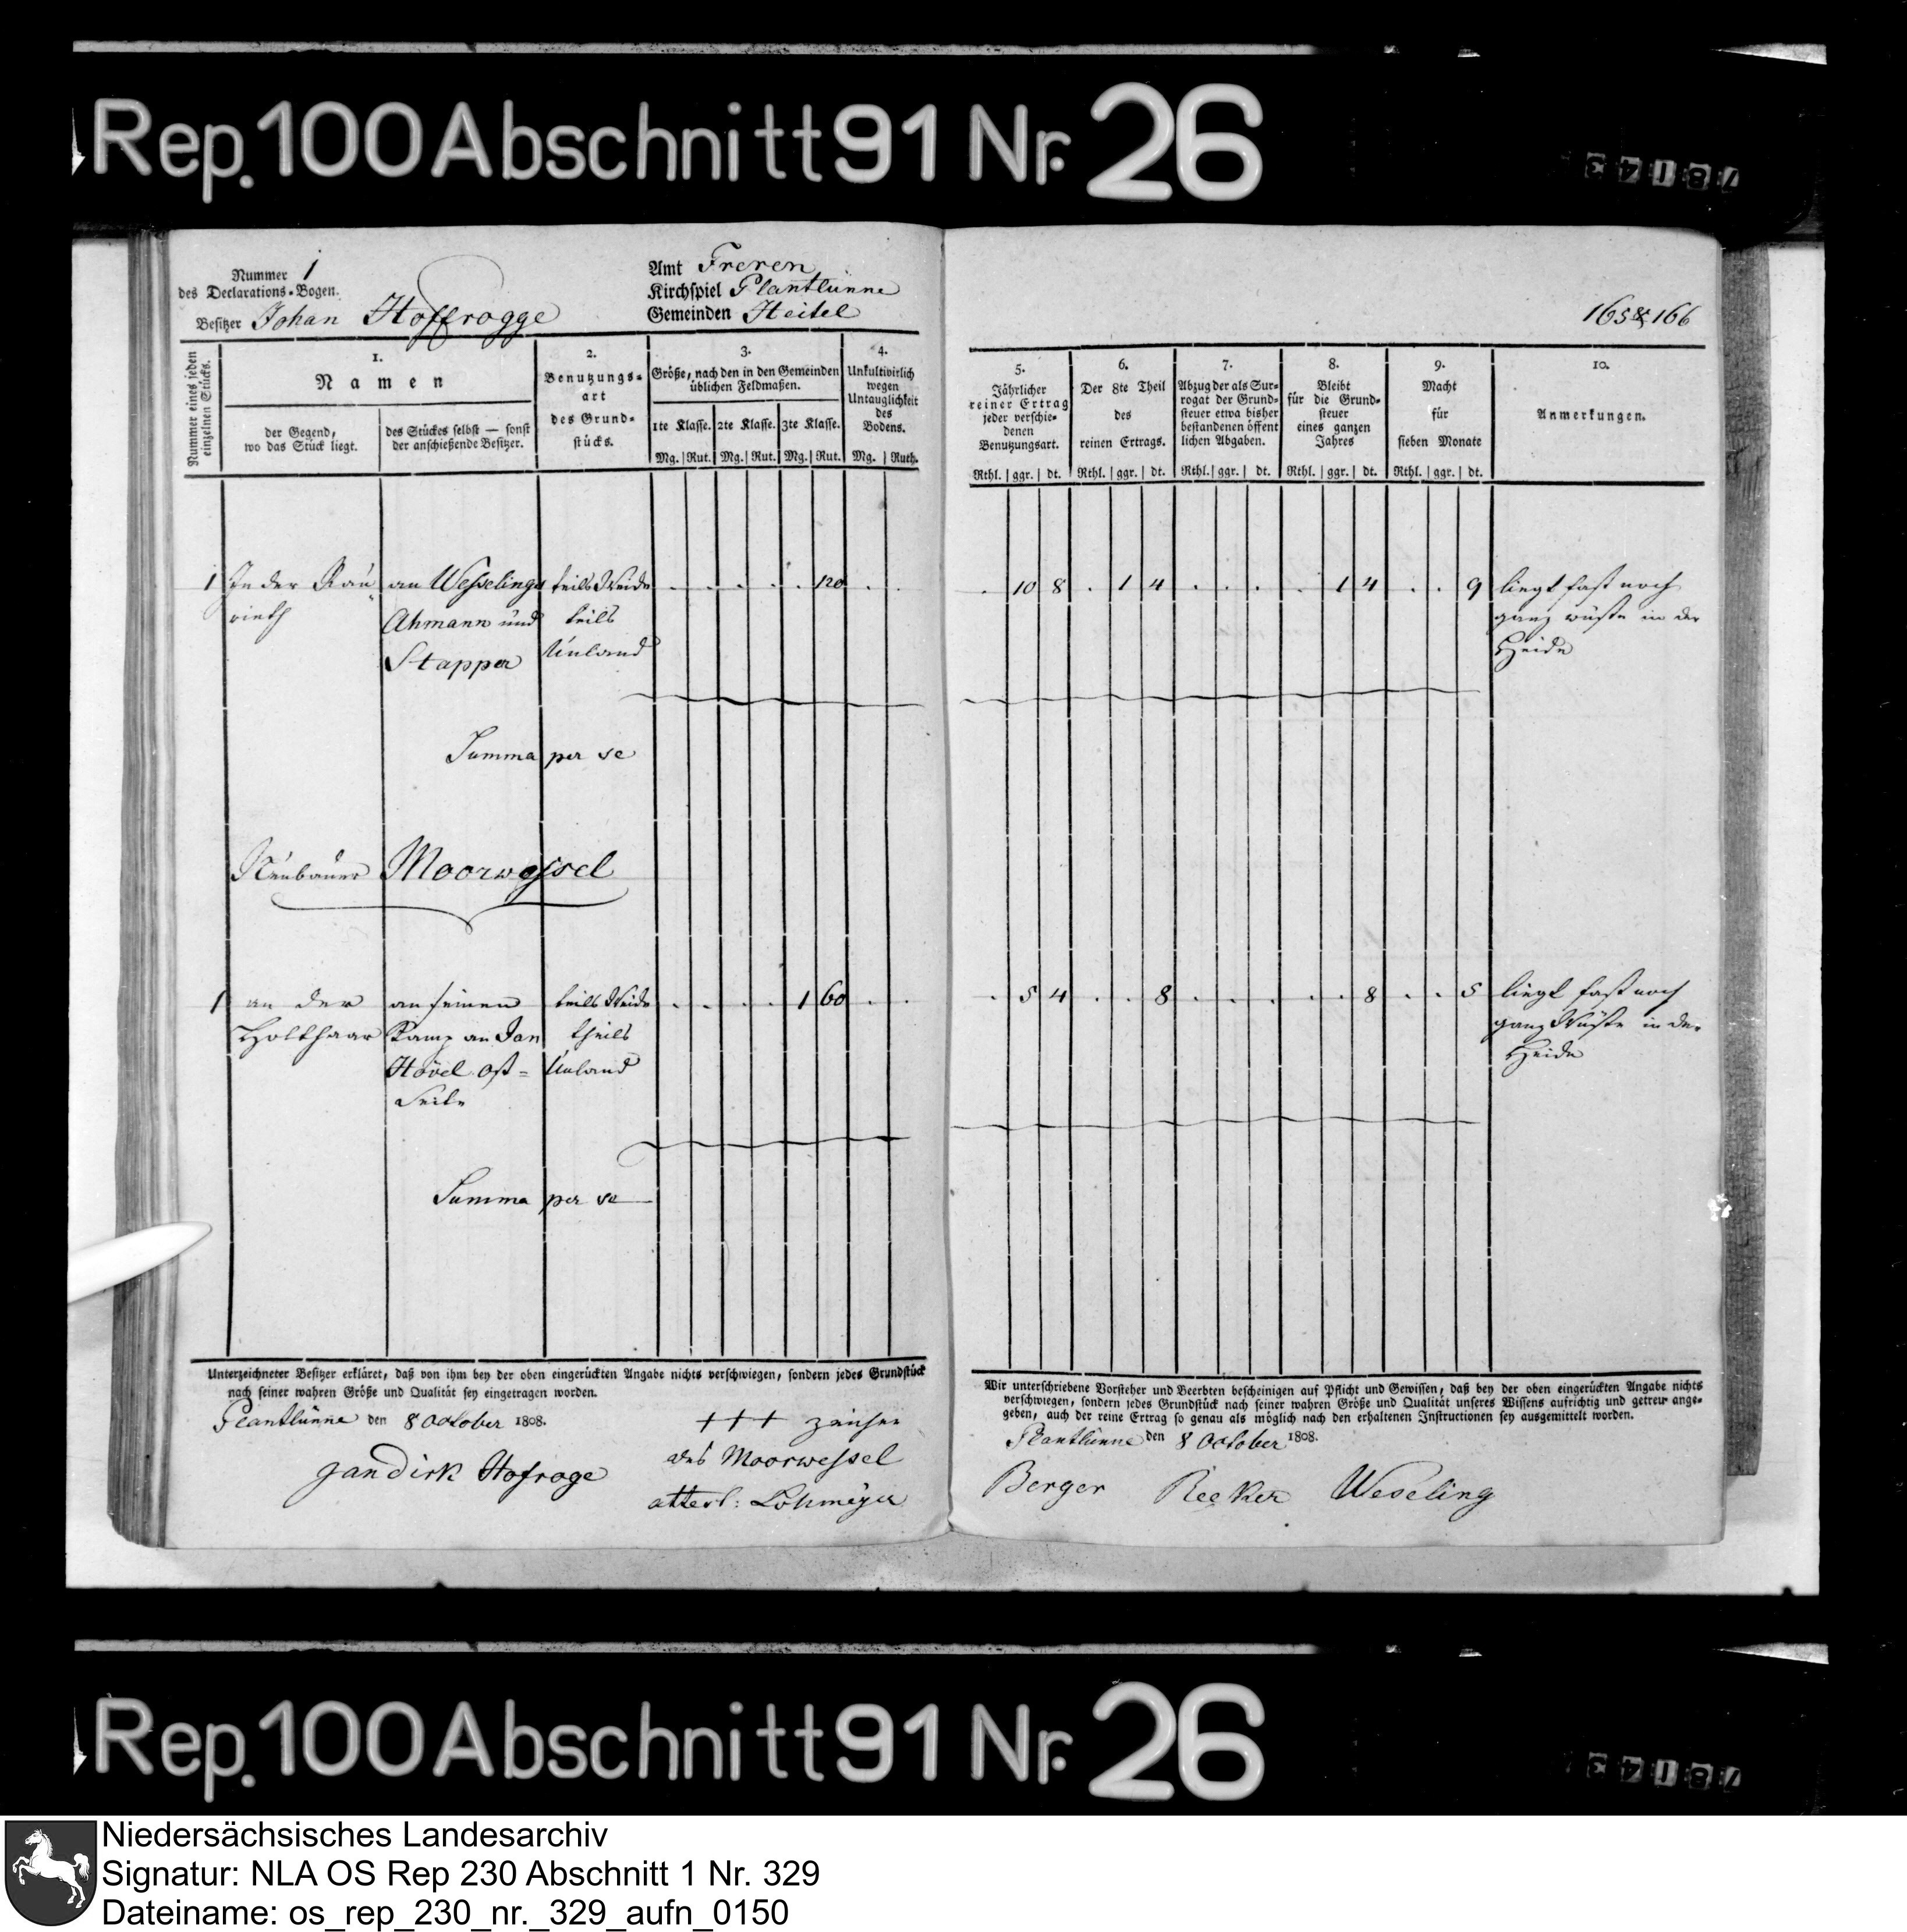 Rep. 100 Abschnitt 91 Nr. 26
78143
Nummer 1
des Declarations-Bogen.
Besitzer Johan Hoffrogge
Amt Freren
Kirchspiel Plantlünne
Gemeinden Heitel
165 & 166
Nummer eines jeden
einzelnen Stücks.
1.
Namen
der Gegend,
wo das Stück liegt.
des Stückes selbst — sonst
der anschießende Besitzer.
2.
Benutzungs-
art
des Grund-
stücks.
3.
Größe, nach den in den Gemeinden
üblichen Feldmaßen.
1te Klasse. 2te Klasse. 3te Klasse.
Mg. Rut. Mg. Rut. Mg. Rut.
4.
Unkultivirlich
wegen
Untauglichkeit
des
Bodens.
Mg. Ruth.
5.
Jährlicher
reiner Ertrag
jeder verschie-
denen
Benutzungsart.
Rthl. ggr. dt.
6.
Der 8te Theil
des
reinen Ertrags.
Rthl. ggr. dt.
7.
Abzug der als Sur-
rogat der Grund-
steuer etwa bisher
bestandenen öffent
lichen Abgaben.
Rthl. ggr. dt.
8.
Bleibt
für die Grund-
steuer
eines ganzen
Jahres
Rthl. ggr. dt.
9.
Macht
für
sieben Monate
Rthl. ggr. dt.
10.
Anmerkungen.
1 In der an Wesselings teils Weide . . . . . 120 . . . 10 8 . 1 4 . . . . 1 4 . . 9 liegt fast noch
Ahmann und teils ganz wüste in der
Stapper Unland Heide
Summa per se
Neubauer Moorwessel
1 an der an seinen teils Weide . . . . 1 60 . . . 5 4 . . 8 . . . . . 8 . . 5 liegt fast noch
Holthaar Kamp an Jan theils ganz Wüste in der
Hövel Ost- Unland Heide
Seite
Summa per se
Unterzeichneter Besitzer erkläret, daß von ihm bey der oben eingerückten Angabe nichts verschwiegen, sondern jedes Grundstück
nach seiner wahren Größe und Qualität sey eingetragen worden.
Plantlünne den 8 October 1808.
jan Dirk Hofroge
+++ zeichen
des Moorwessel
attest: Lohmeyer
Wir unterschriebene Vorsteher und Beerbten bescheinigen auf Pflicht und Gewissen, daß bey der oben eingerückten Angabe nichts
verschwiegen, sondern jedes Grundstück nach seiner wahren Größe und Qualität unseres Wissens aufrichtig und getreu ange-
geben, auch der reine Ertrag so genau als möglich nach den erhaltenen Instructionen sey ausgemittelt worden.
Plantlünne den 8 October 1808.
Berger Reeker Weseling
Rep. 100 Abschnitt 91 Nr. 26
78143
Niedersächsisches Landesarchiv
Signatur: NLA OS Rep 230 Abschnitt 1 Nr. 329
Dateiname: os_rep_230_nr._329_aufn_0150